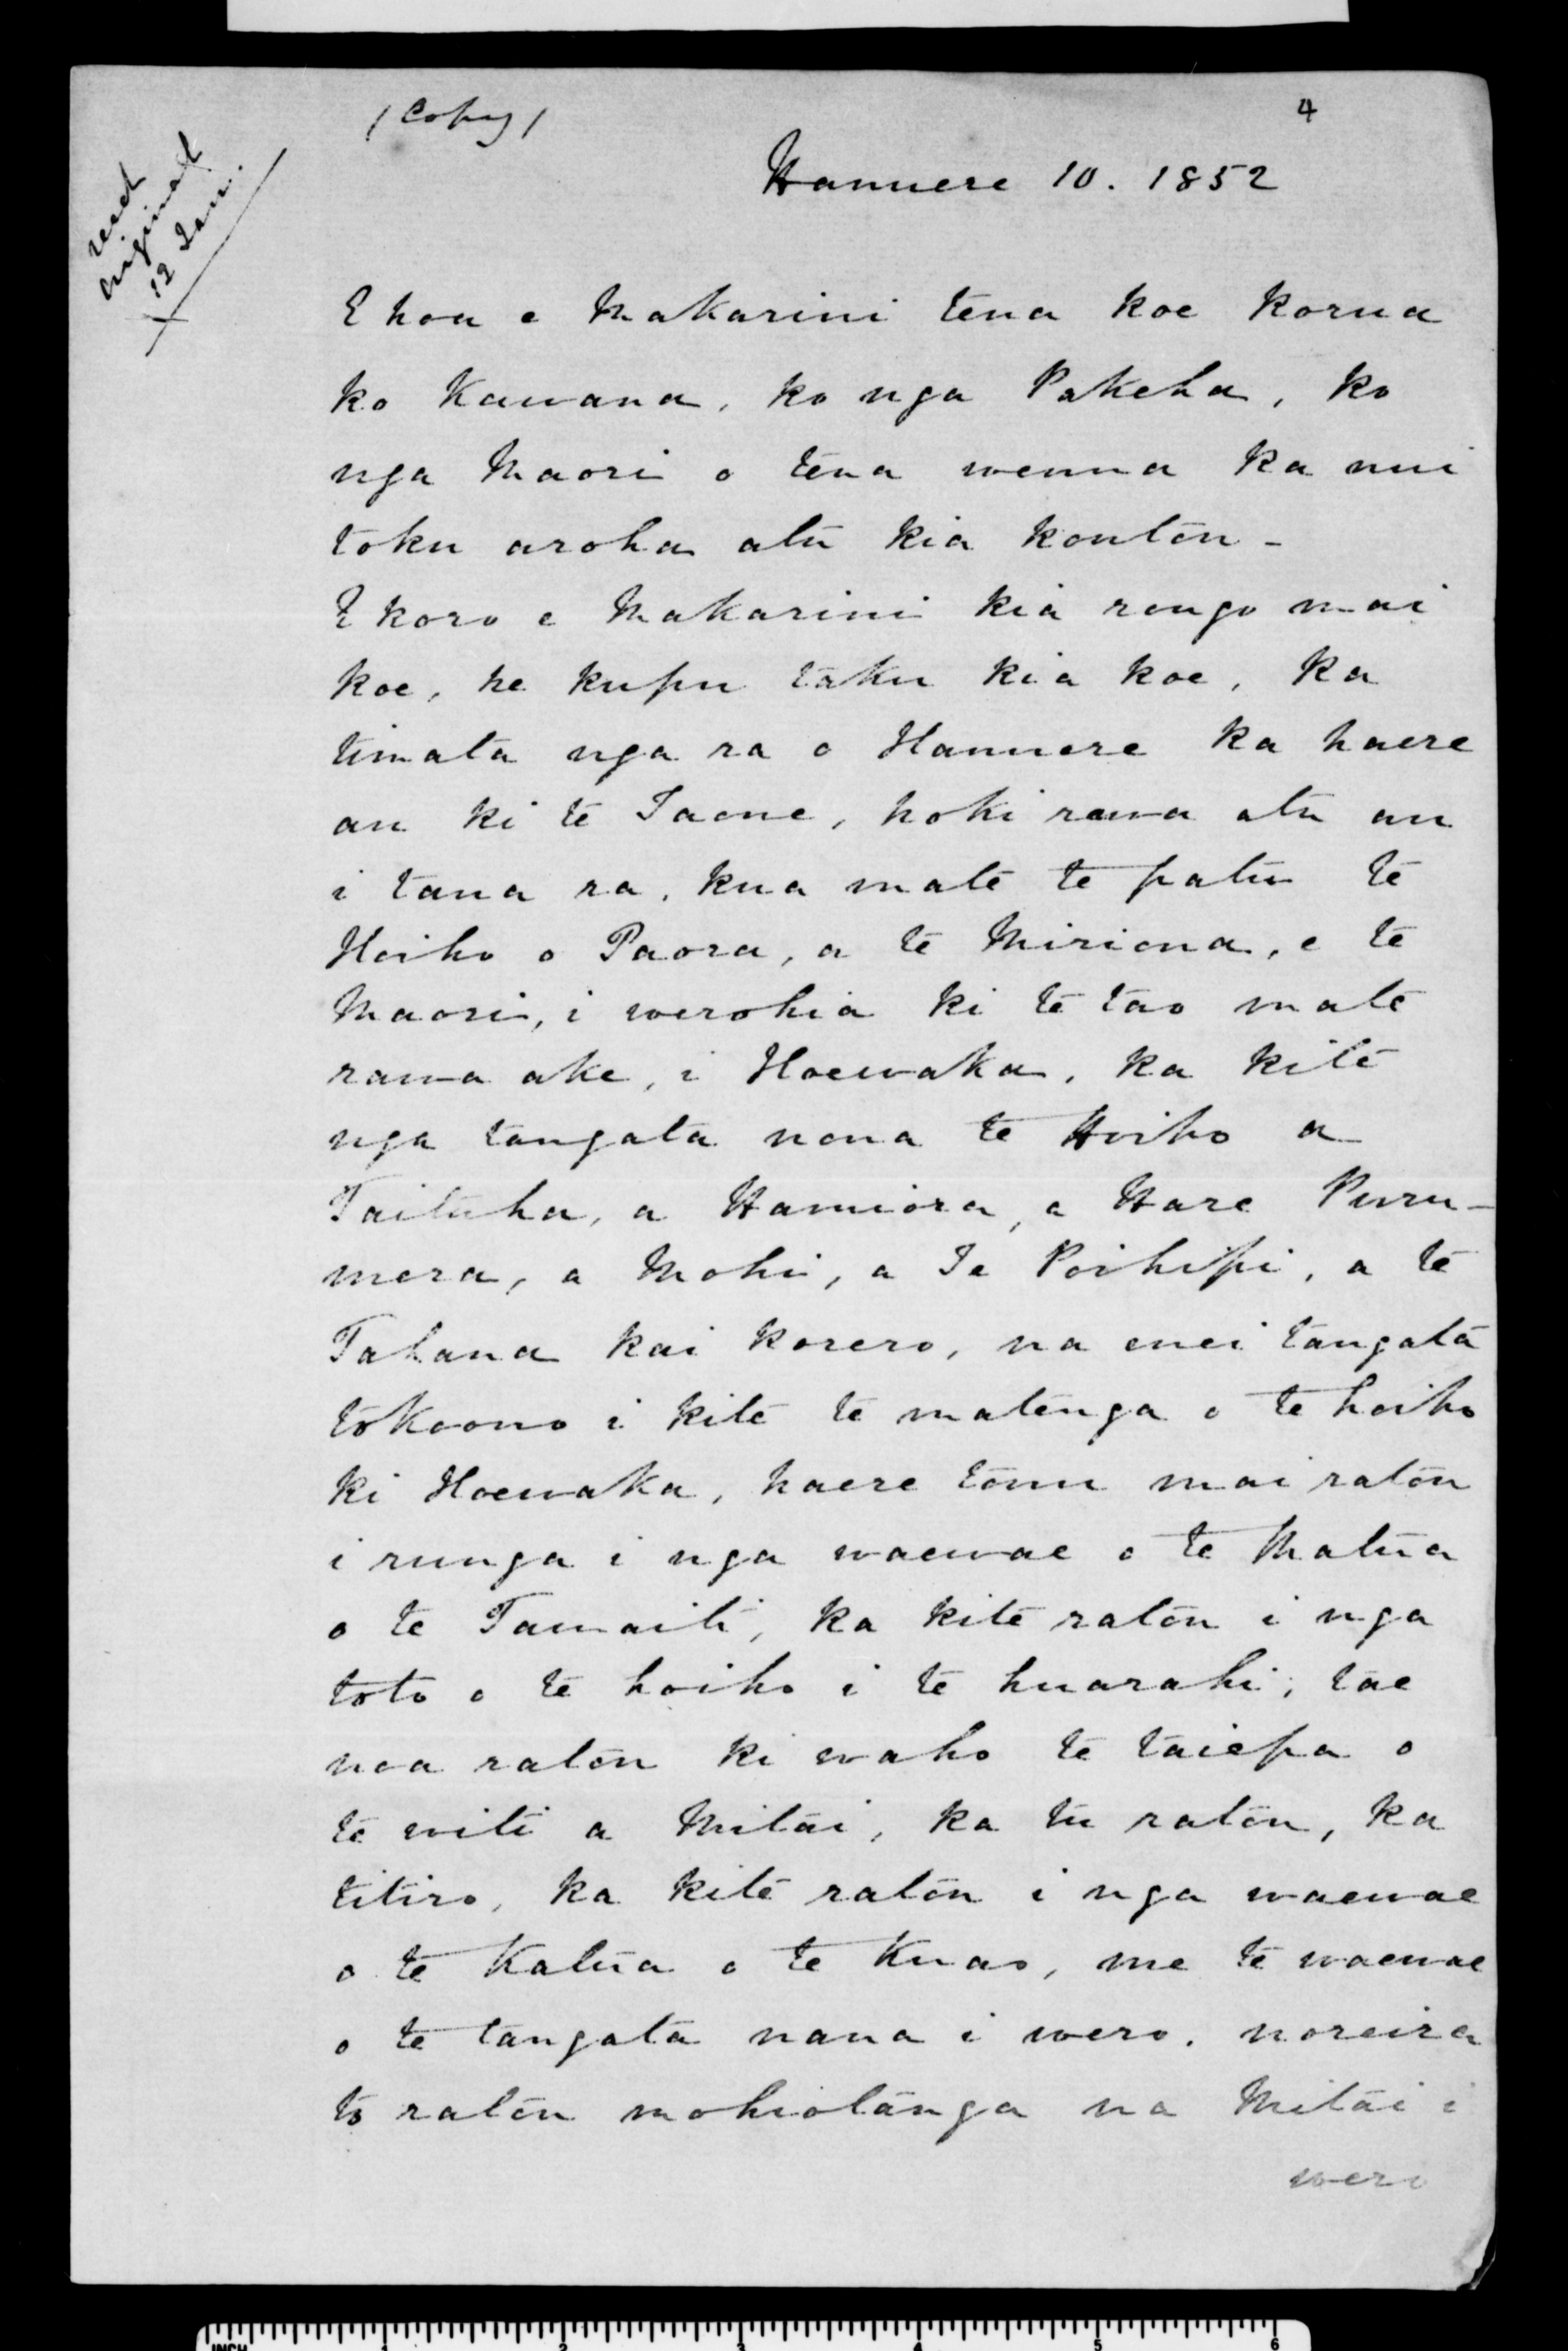 (Copy)
4
recd
original
12 Jan.
Hanuere 10. 1852
E hoa e Makarini tena koe korua
ko Kawana, ko nga Pakeha, ko
nga Maori o tena wenua ka nui
toku aroha atu kia koutou -
E koro e Makarini kia rongo mai
koe, he kupu taku kia koe, ka
timata nga ra o Hanuere ka haere
au ki te Taone, hoki rawa atu au
i taua ra, kua mate te patu te
Hoiho o Paora, a te Miriona, e te
Maori, i werohia ki te tao mate
rawa ake, i Hoewaka, ka kite
nga tangata nona te Hoiho a
Taituha, a Hamiora, a Hare Puru-
mera, a Mohi, a Te Poihipi, a te
Tahana kai korero, na enei tangata
tokoono i kite te matenga o te hoiho
ki Hoewaka, haere tonu mai ratou
i runga i nga waewae o te Matua
o te Tamaiti, ka kite ratou i nga
toto o te hoiho i te huarahi, tae
noa ratou ki waho te taiepa o
te witi a Mitai, ka tu ratou, ka
titiro, ka kite ratou i nga waewae
o te Katua o te Kuao, me te waewae
o te tangata nana i wero. noreira
to ratou mohiotanga na Mitai i
wero
INCH
1
2
3
4
5
6